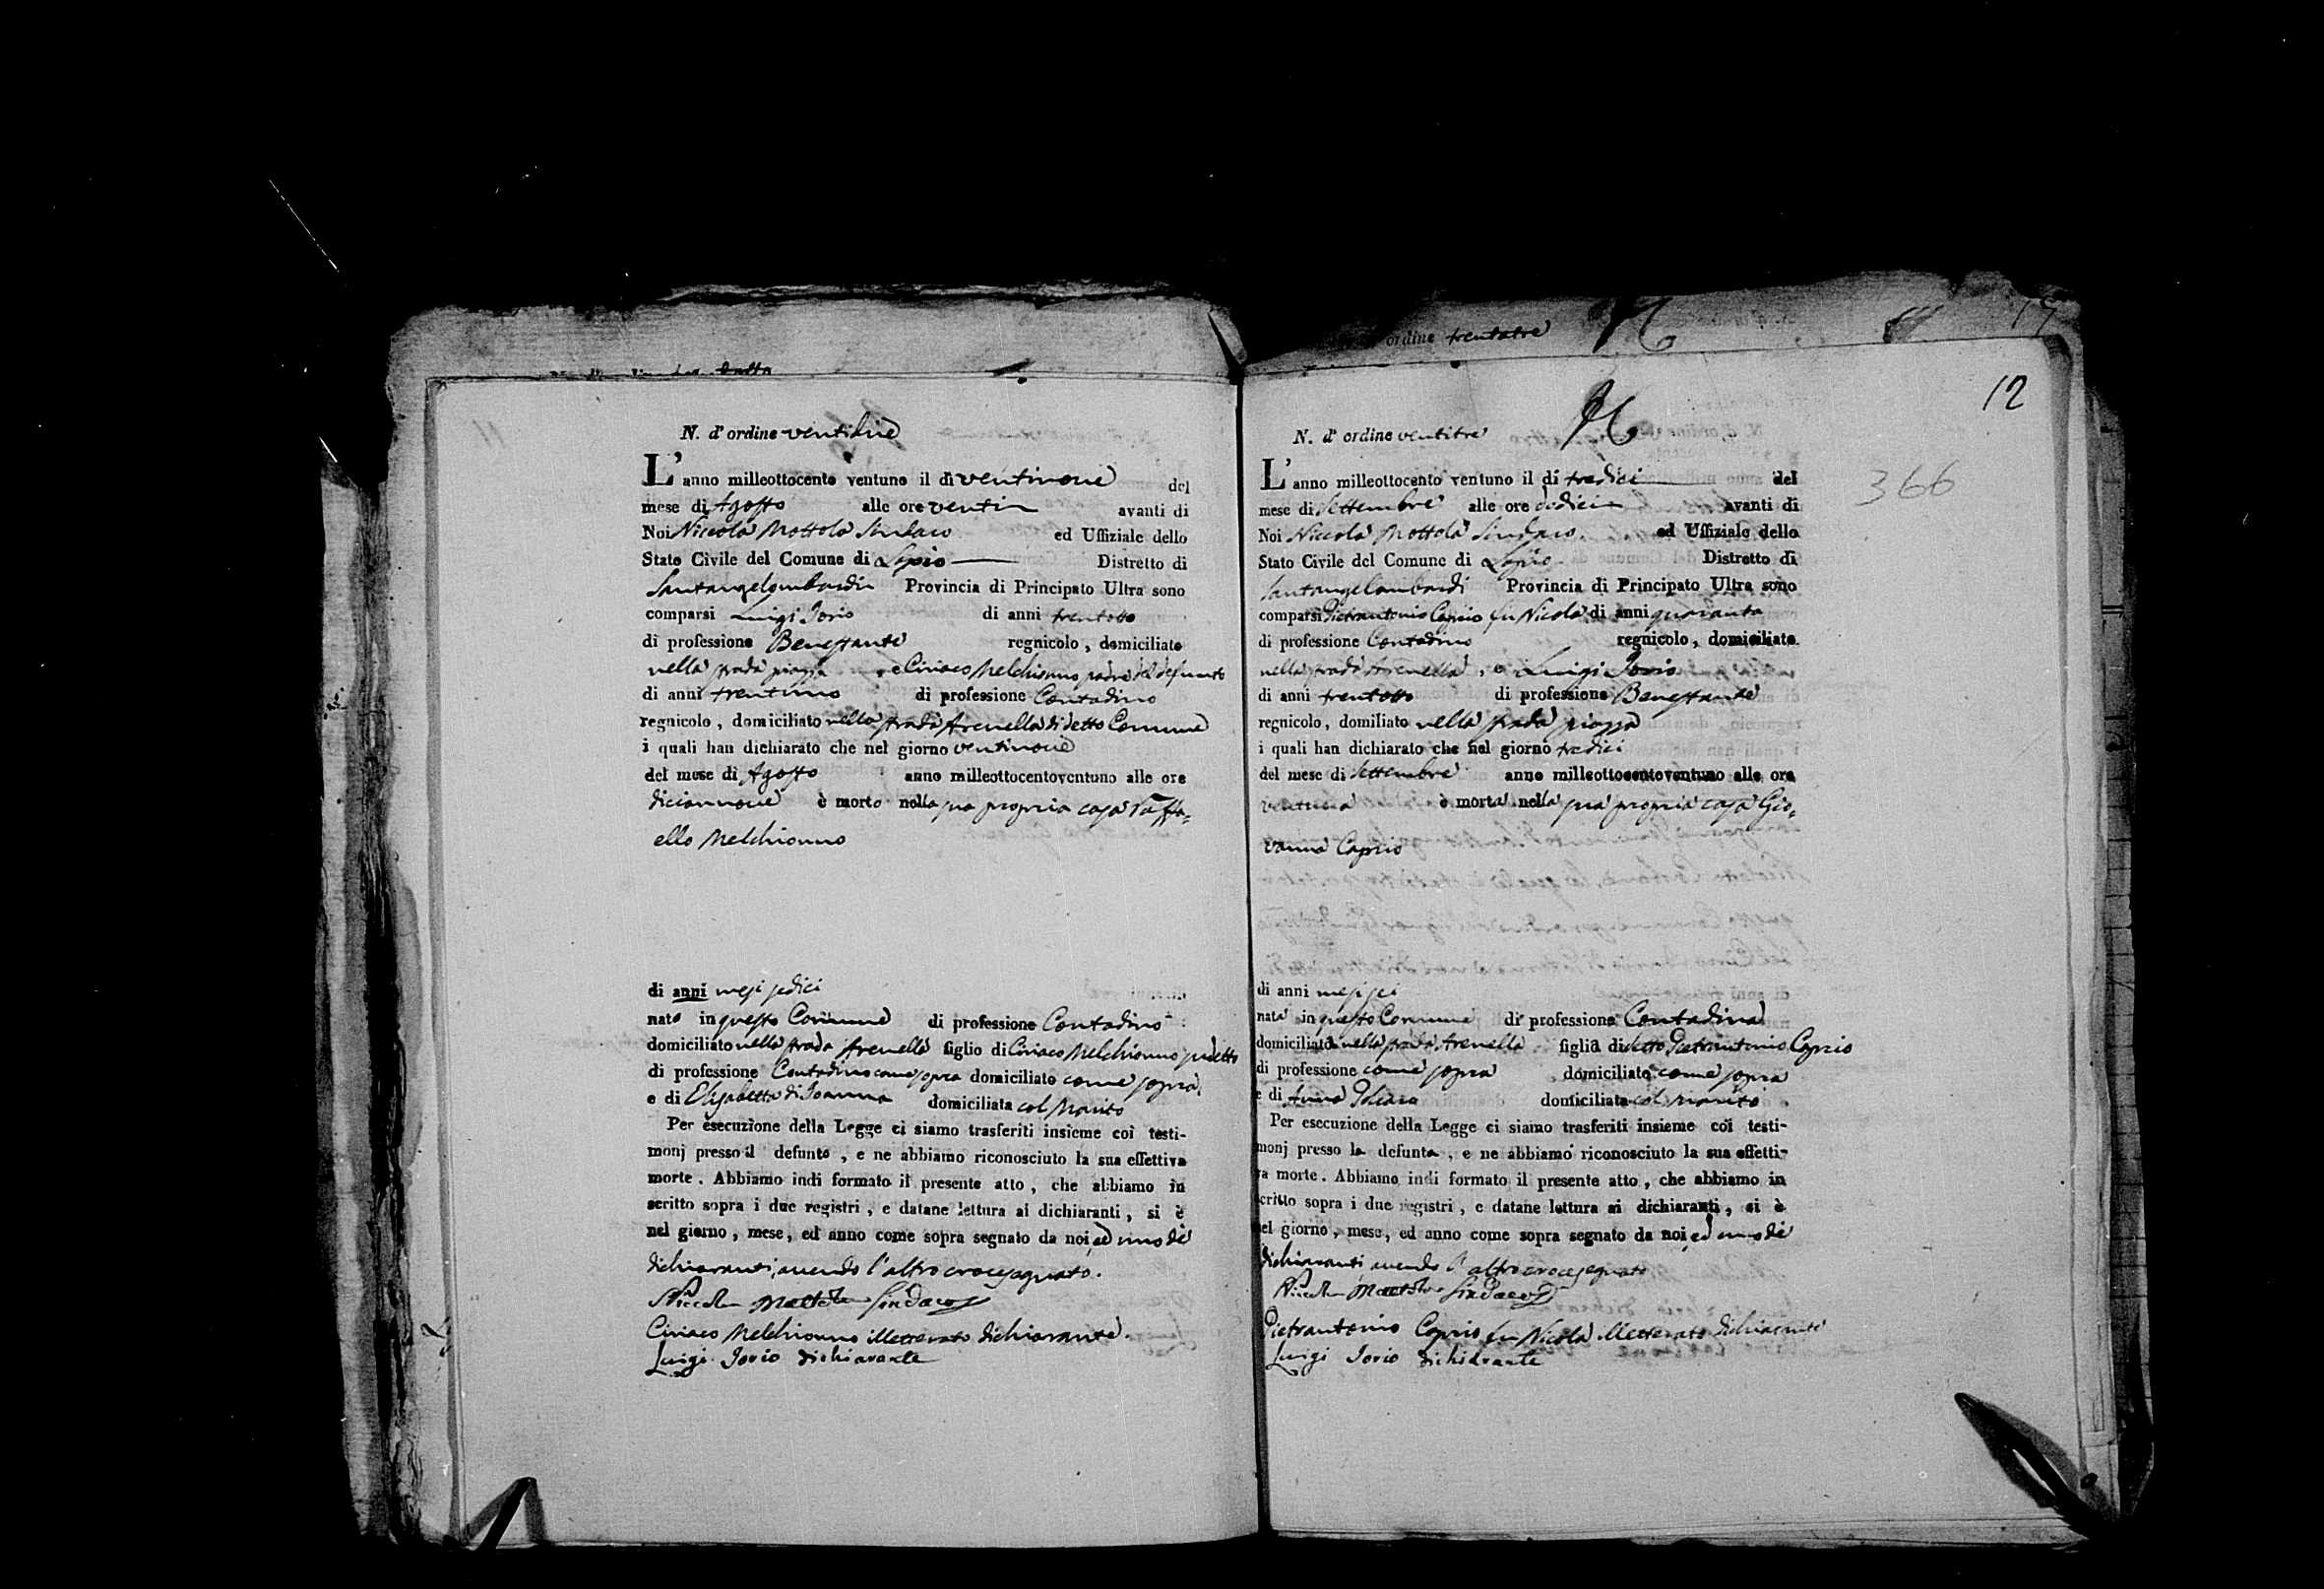 N. d'ordine ventidue
L'anno milleottocento ventuno il dì ventinove del
mese di Agosto alle ore venti avanti di
Noi Niccola Mottola Sindaco ed Uffiziale dello
Stato Civile del Comune di Lapio Distretto di
Santangelombardi Provincia di Principato Ultra sono
comparsi Luigi Iorio di anni trentotto
di professione Benestante regnicolo, domiciliato
nella strada piazza, e Ciriaco Melchionno padre del defunto
di anni trentuno di professione Contadino
regnicolo, domiciliato nella strada Arenella di detto Comune
i quali han dichiarato che nel giorno ventinove
del mese di Agosto anno milleottocentoventuno alle ore
diciannove è morto nella sua propria casa Raffa=
ello Melchionno
di anni mesi sedici
nato in questo Comune di professione Contadino
domiciliato nella strada Arenella figlio di Ciriaco Melchionno sudetto
di professione Contadino come sopra domiciliato come sopra,
e di Elisabetta di Ioanna domiciliata col Marito
Per esecuzione della Legge ci siamo trasferiti insieme coi testi-
monj presso il defunto, e ne abbiamo riconosciuto la sua effettiva
morte. Abbiamo indi formato il presente atto, che abbiamo in
scritto sopra i due registri, e datane lettura ai dichiaranti, si è
nel giorno, mese, ed anno come sopra segnato da noi, ed uno de'
dichiaranti, avendo l'altro crocesegnato.
Niccola Mottola Sindaco
Ciriaco Melchionno illetterato dichiarante.
Luigi Iorio dichiarante
ordine trentatre
12
366
N. d'ordine ventitre
L'anno milleottocento ventuno il dì tredici del
mese di Settembre alle ore dodici avanti di
Noi Niccola Mottola Sindaco ed Uffiziale dello
Stato Civile del Comune di Lapio Distretto di
Santangelombardi Provincia di Principato Ultra sono
comparsi Pietrantonio Caprio fu Nicola di anni quaranta
di professione Contadino regnicolo, domiciliato
nella strada Arenella, e Luigi Iorio
di anni trentotto di professione Benestante
regnicolo, domiliato nella strada piazza
i quali han dichiarato che nel giorno tredici
del mese di Settembre anno milleottocentoventuno alle ore
ventuna è morta nella sua propria casa Gio=
vanna Caprio
di anni mesi sei
nata in questo Comune di professione Contadina
domiciliata nella strada Arenella figlia di detto Pietrantonio Caprio
di professione come sopra domiciliato come sopra
e di Anna domiciliata col marito
Per esecuzione della Legge ci siamo trasferiti insieme coi testi-
monj presso la defunta, e ne abbiamo riconosciuto la sua effetti-
va morte. Abbiamo indi formato il presente atto, che abbiamo in
scritto sopra i due registri, e datane lettura ai dichiaranti, si è
nel giorno, mese, ed anno come sopra segnato da noi, ed uno de'
dichiaranti avendo l'altro crocesegnato
Niccola Mottola Sindaco
Pietrantonio Caprio fu Nicola illetterato dichiarante
Luigi Iorio dichiarante